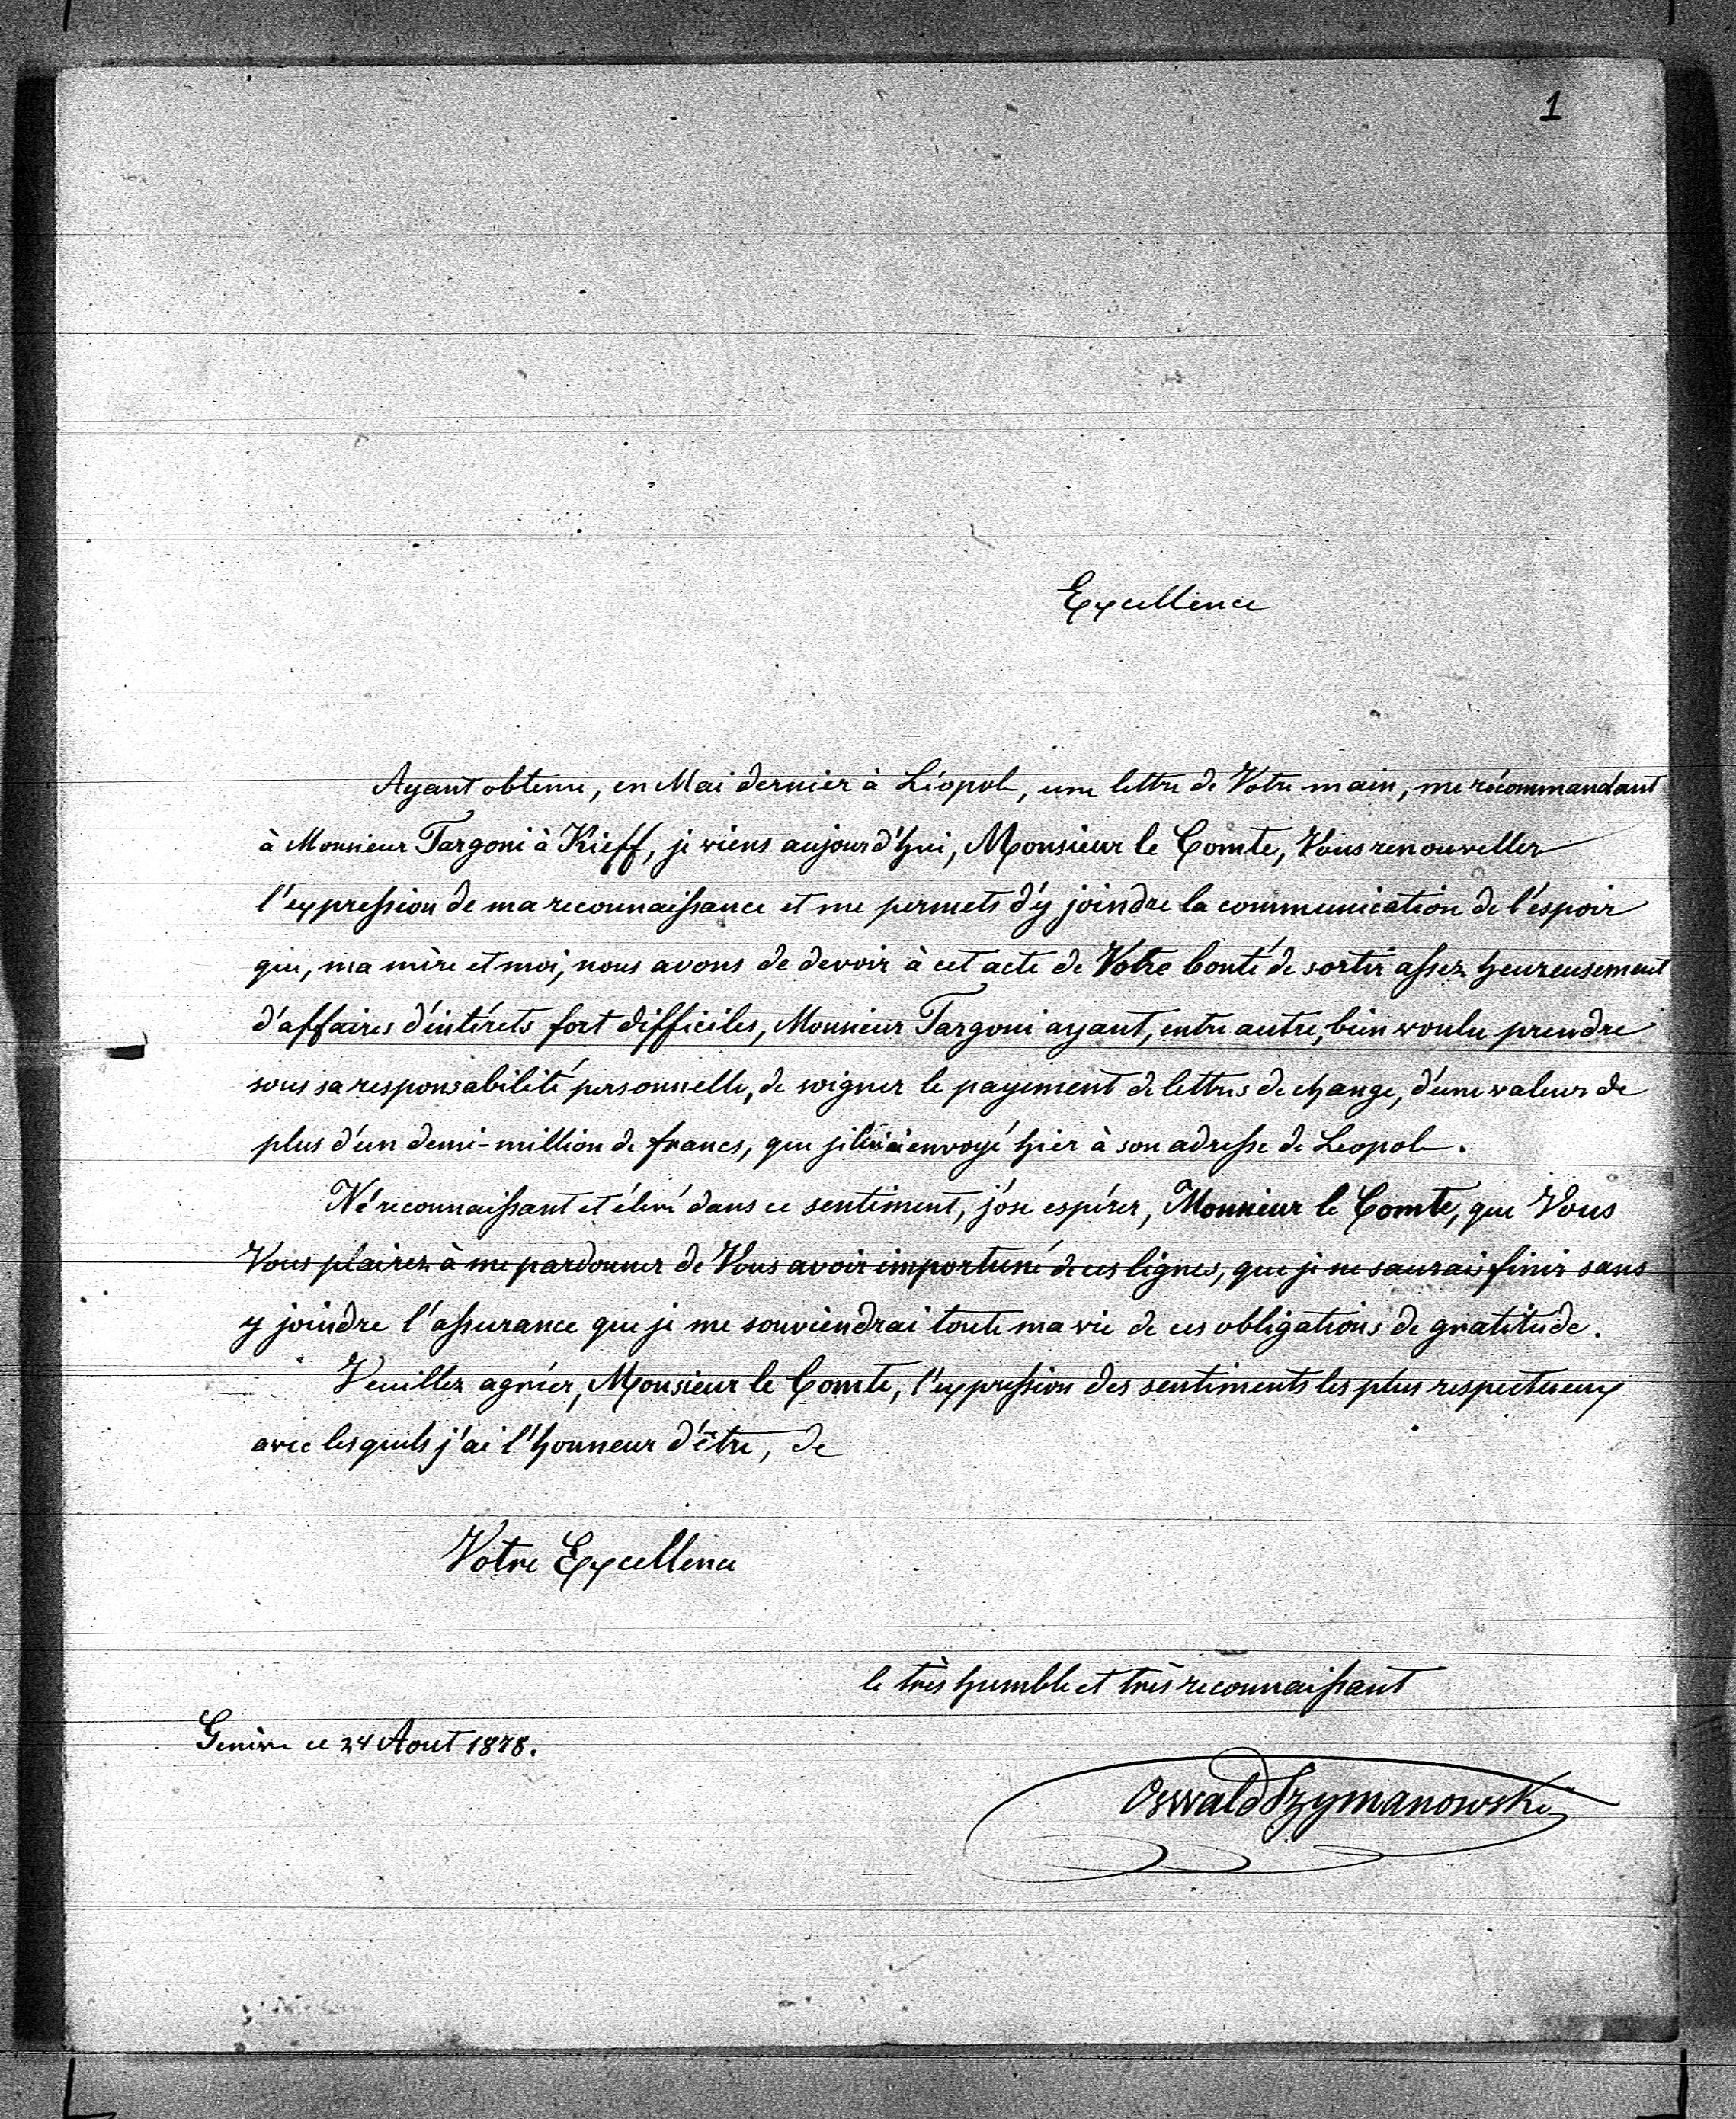 1
Excellence
Ayant obtenu, en Mai dernier à Léopol, une lettre de Votre main, me récommandant
à Monsieur Targoni à Kieff, je viens aujourd'hui, Monsieur le Comte, Vous renouveller
l'expression de ma reconnaissance et me permets d'y joindre la communication de l'espoir
que, ma mère et moi, nous avons de devoir à cet acte de Votre bonté de sortir assez heureusement
d'affaires d'intérets fort difficiles, Monsieur Targoni ayant, entre autre, bien voulu prendre
sous sa responsabilité personnelle, de soigner le payement de lettres de change, d'une valeur de
plus d'un demi-million de francs, que je envoyé hier à son adresse de Leopol.
Né reconnaissant et élevé dans ce sentiment, j'ose espérer, Monsieur le Comte, que Vous
Vous plairez à me pardonner de Vous avoir importuné de ces lignes, que je ne saurais finir sans
y joindre l'assurance que je me souviendrai toute ma vie de ces obligations de gratitude.
Veuillez agréer, Monsieur le Comte, l'expression des sentiments les plus respectueux
avec lesquels j'ai l'honneur d'être, de
Votre Excellence
le très humble et très reconnaissant
Genève ce 24 Aout 1878.
Oswald Szymanowski